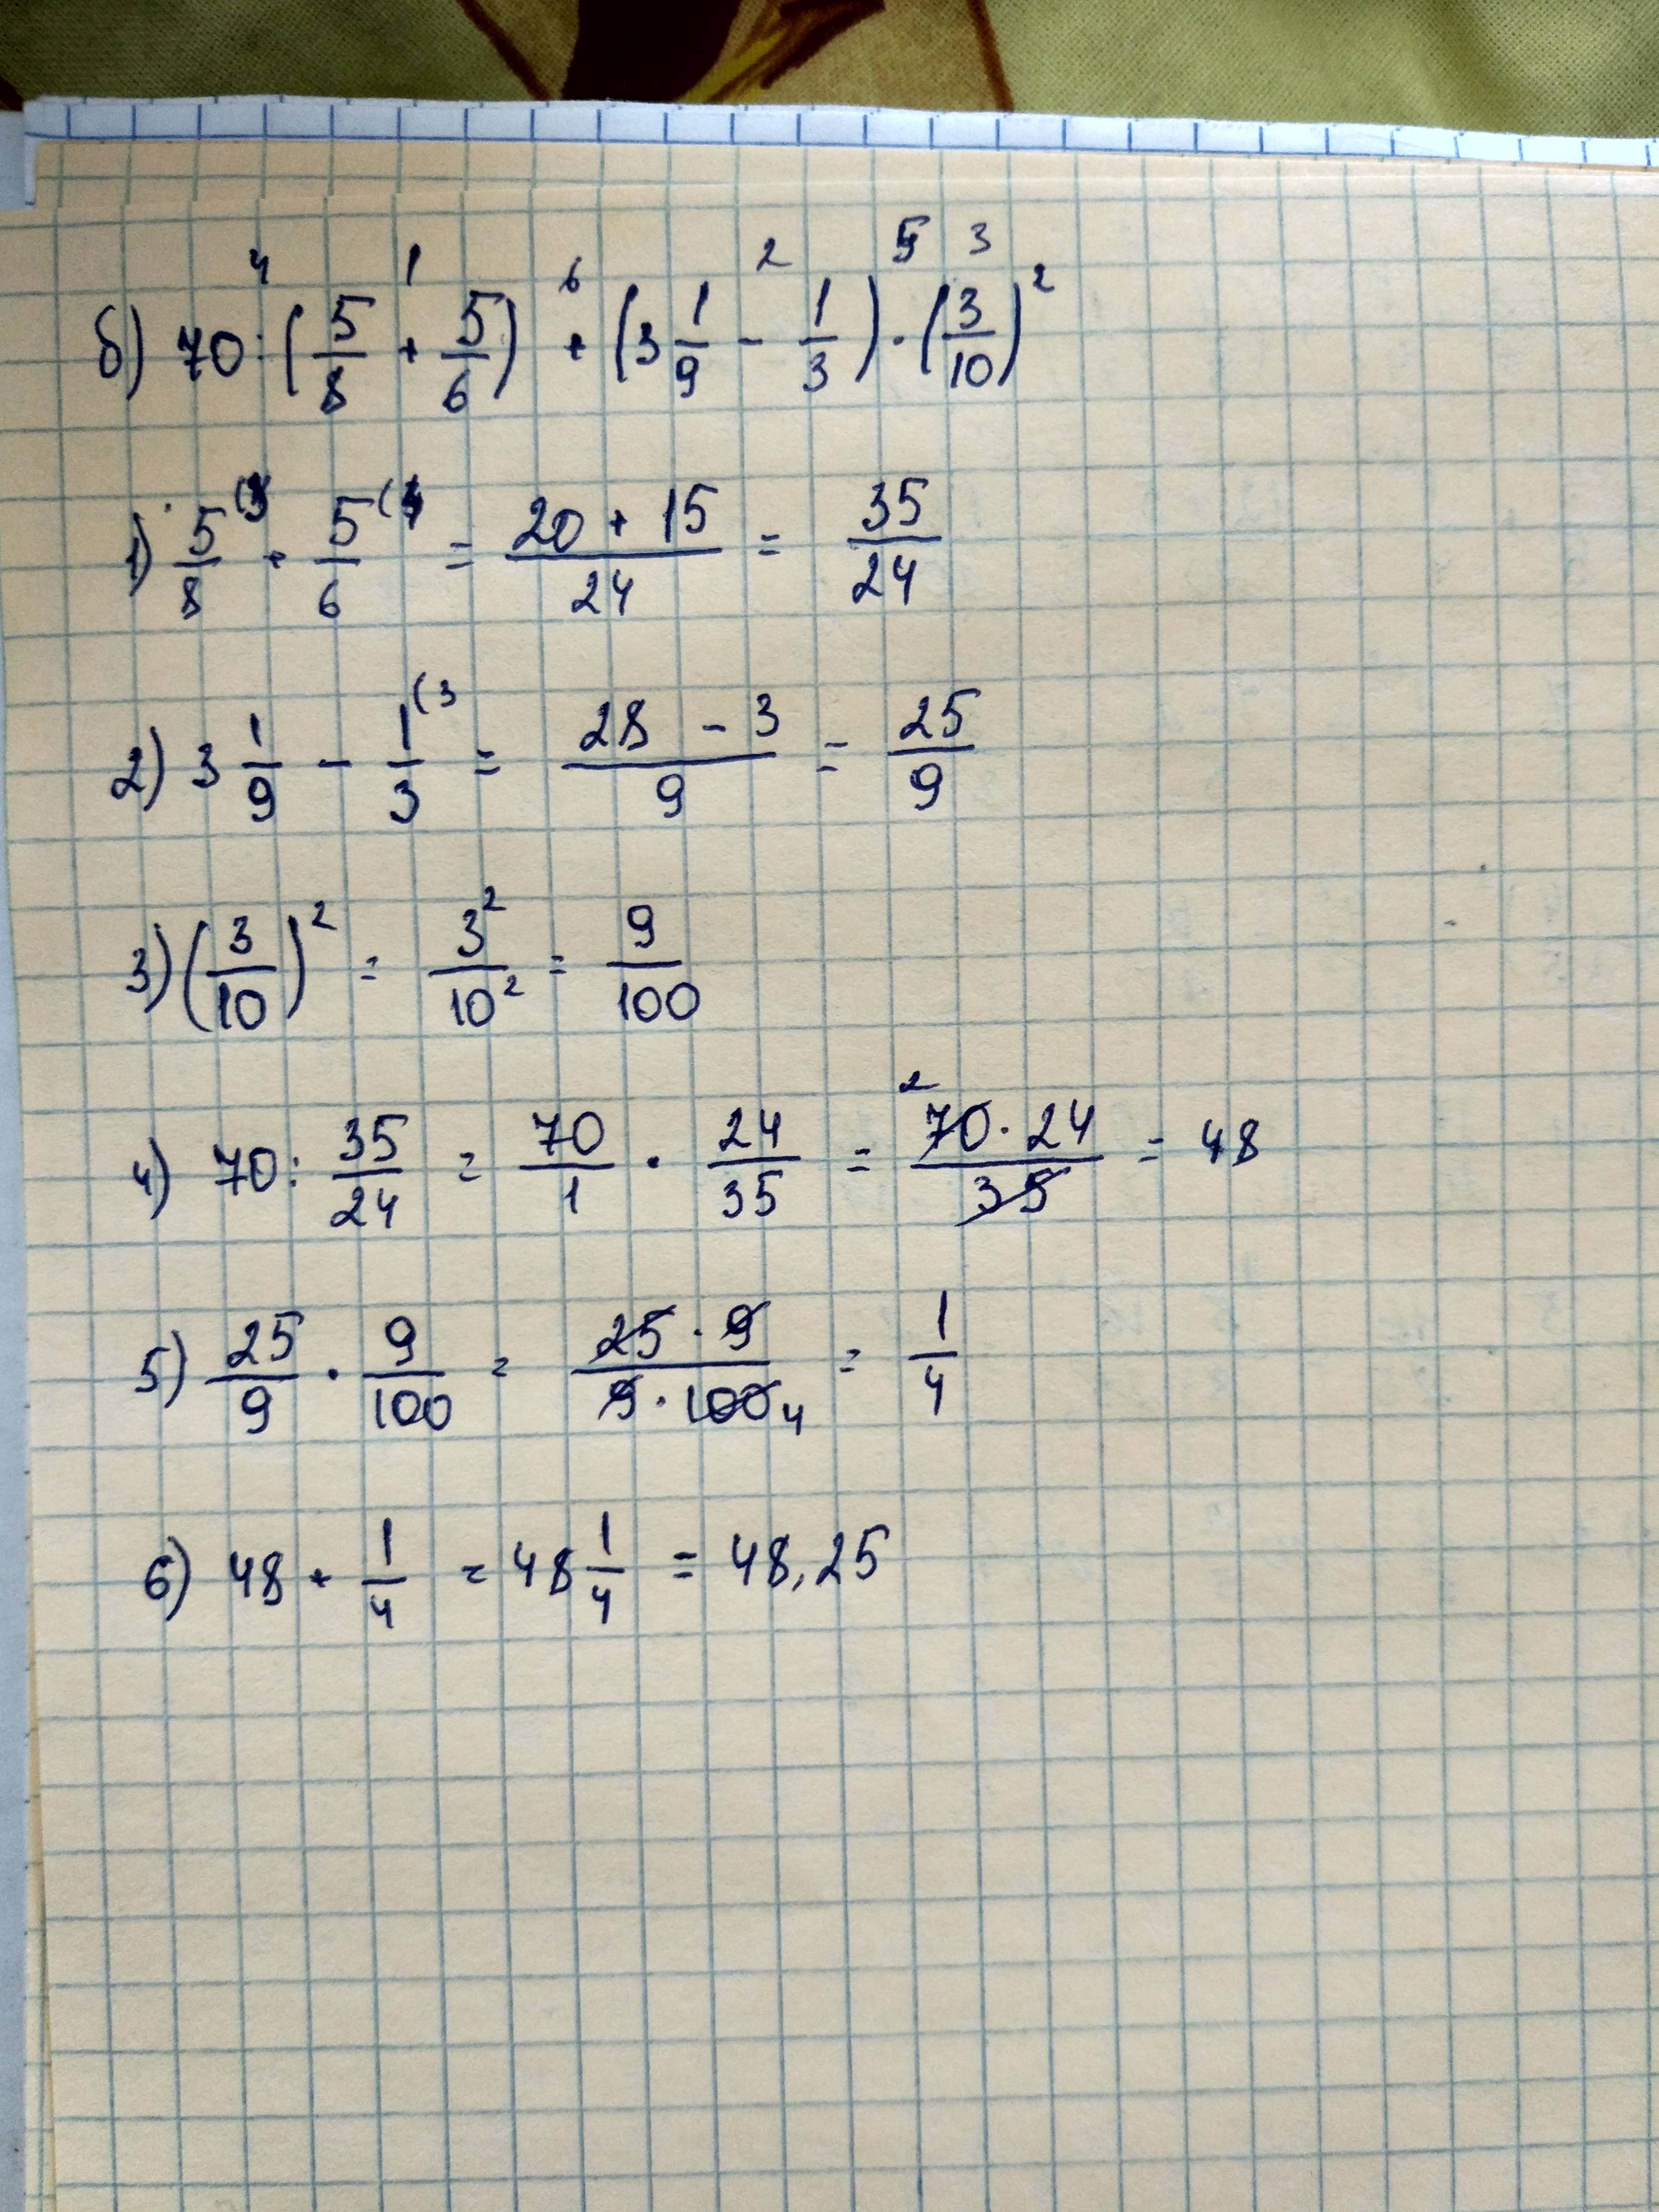 4 1 6 2 5 3
б) 70 : (5/8 + 5/6) + (3 1/9 - 1/3) · (3/10)²
1) 5/8 (3 + 5/6 (4 = (20 + 15)/24 = 35/24
2) 3 1/9 - 1/3 (3 = (28 - 3)/9 = 25/9
3) (3/10)² = 3²/10² = 9/100
4) 70 : 35/24 = 70/1 · 24/35 = ²70 · 24/35 = 48
5) 25/9 · 9/100 = 25 · 9/9 · 100 4 = 1/4
6) 48 + 1/4 = 48 1/4 = 48,25